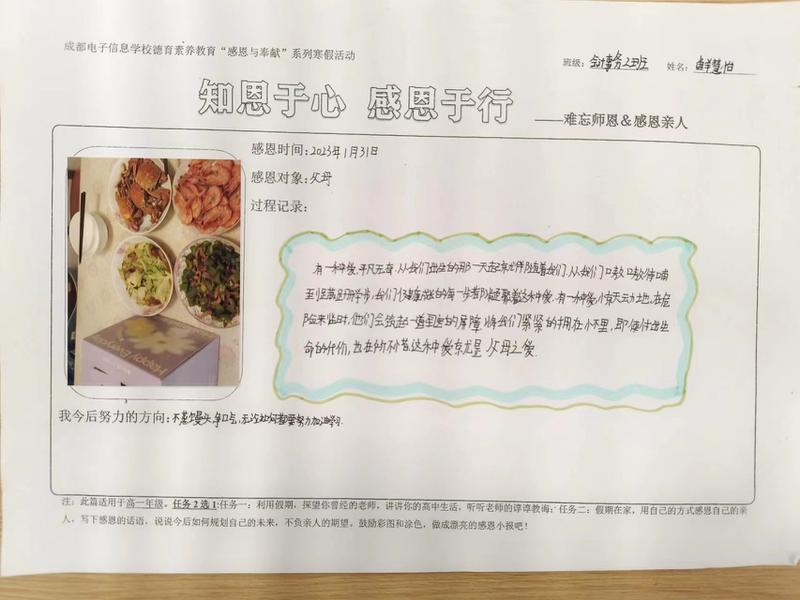 成都电子信息学校德育素养教育“感恩与奉献”系列寒假活动
班级：会计事务2班 姓名：
知恩于心 感恩于行 ——难忘师恩＆感恩亲人
感恩时间：2023年1月31日
感恩对象：父母
过程记录：
有一种爱，平凡无奇，从我们出生的那一天起就伴随着我们，从我们口数嗷嗷待哺
到蹒跚学步，我们健康成长的每一步都凝聚着这种爱。有一种爱，惊天动地，在危
险来临时，他们会筑起一道坚固的屏障，将我们紧紧的拥在怀里，即便付出生
命的代价，也在所不惜这种爱就是父母之爱。
Happy Everyday
我今后努力的方向：不蒸馒头争口气，无论如何都要努力加油学习.
注：此篇适用于高一年级。任务2选1：任务一：利用假期，探望你曾经的老师，讲讲你的高中生活，听听老师的谆谆教诲；任务二：假期在家，用自己的方式感恩自己的亲
人，写下感恩的话语，说说今后如何规划自己的未来，不负亲人的期望。鼓励彩图和涂色，做成漂亮的感恩小报吧！